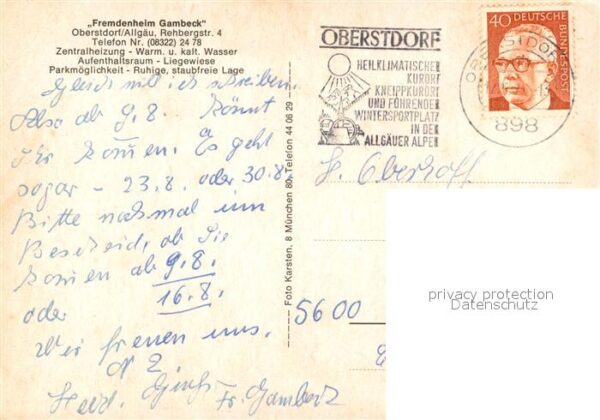 „Fremdenheim Gambeck"
Oberstdorf/Allgäu, Rehbergstr. 4
Telefon Nr. (08322) 24 78
Zentralheizung - Warm. u. kalt. Wasser
Aufenthaltsraum - Liegewiese
Parkmöglichkeit - Ruhige, staubfreie Lage
Gleich will ich schreiben.
Also ab 9.8. könnt
Ihr kommen. Es geht
sogar - 23.8. oder 30.8.
Bitte nochmal um
Bescheid, ob Sie
kommen ab 9.8.
oder 16.8.
Wir freuen uns.
Herzl. Grüße Fr. Gambeck
Foto Karsten, 8 München 80, Telefon 44 06 29
OBERSTDORF
HEILKLIMATISCHER
KURORT
KNEIPPKURORT
UND FÜHRENDER
WINTERSPORTPLATZ
IN DEN
ALLGÄUER ALPEN
OBERSTDORF
898
40 DEUTSCHE
BUNDESPOST
H. Oberhoff
5600
privacy protection
Datenschutz